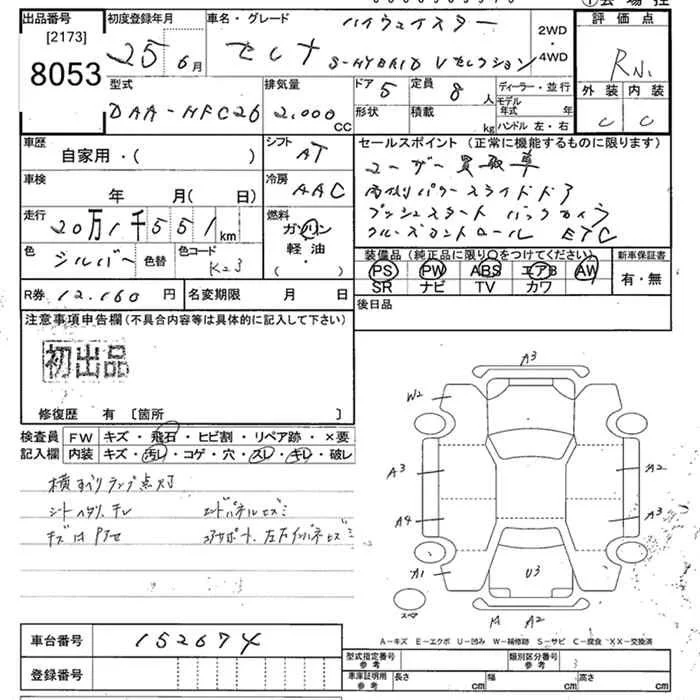 出品番号
[2173]
8053
初度登録年月
25 6月
車名・グレード
ハイウェイスター
セレナ S-HYBRID Vセレクション
2WD
・
4WD
評価点
R
外装 内装
C C
型式
DAA-HFC26
排気量
2.000
CC
ドア 5
形状
定員 8 人
積載 kg
ディーラー・並行
モデル年式 年
ハンドル 左・右
車歴
自家用・( )
シフト
AT
車検
年 月( 日)
冷房
AAC
走行
20万1千551km
燃料
ガソリン
軽油
( )
色 シルバー 色替
色コード K23
R券 12.160 円
名変期限 月 日
セールスポイント (正常に機能するものに限ります)
ユーザー買取車
両側パワースライドドア
プッシュスタート バックカメラ
クルーズコントロール ETC
装備品(純正品に限り○をつけてください)
PS PW ABS エアB AW
SR ナビ TV カワ
新車保証書
有・無
後日品
注意事項申告欄(不具合内容等は具体的に記入して下さい)
初出品
修復歴 有〔箇所 〕
検査員記入欄
FW キズ・飛石・ヒビ割・リペア跡・×要
内装 キズ・汚レ・コゲ・穴・スレ・キレ・破レ
横すべりランプ点灯
シートヘタリ、キレ エンドパネルヒズミ
コアサポート、左右インパネヒズミ
A3
W2
A3
A2
A4
A3
A1
U3
スペア
A2
A-キズ E-エクボ U-凹み W-補修跡 S-サビ C-腐食 XX-交換済
車台番号
152674
登録番号
型式指定番号
参考
類別区分番号
参考
車庫証明用
参考
長さ cm
幅 cm
高さ cm